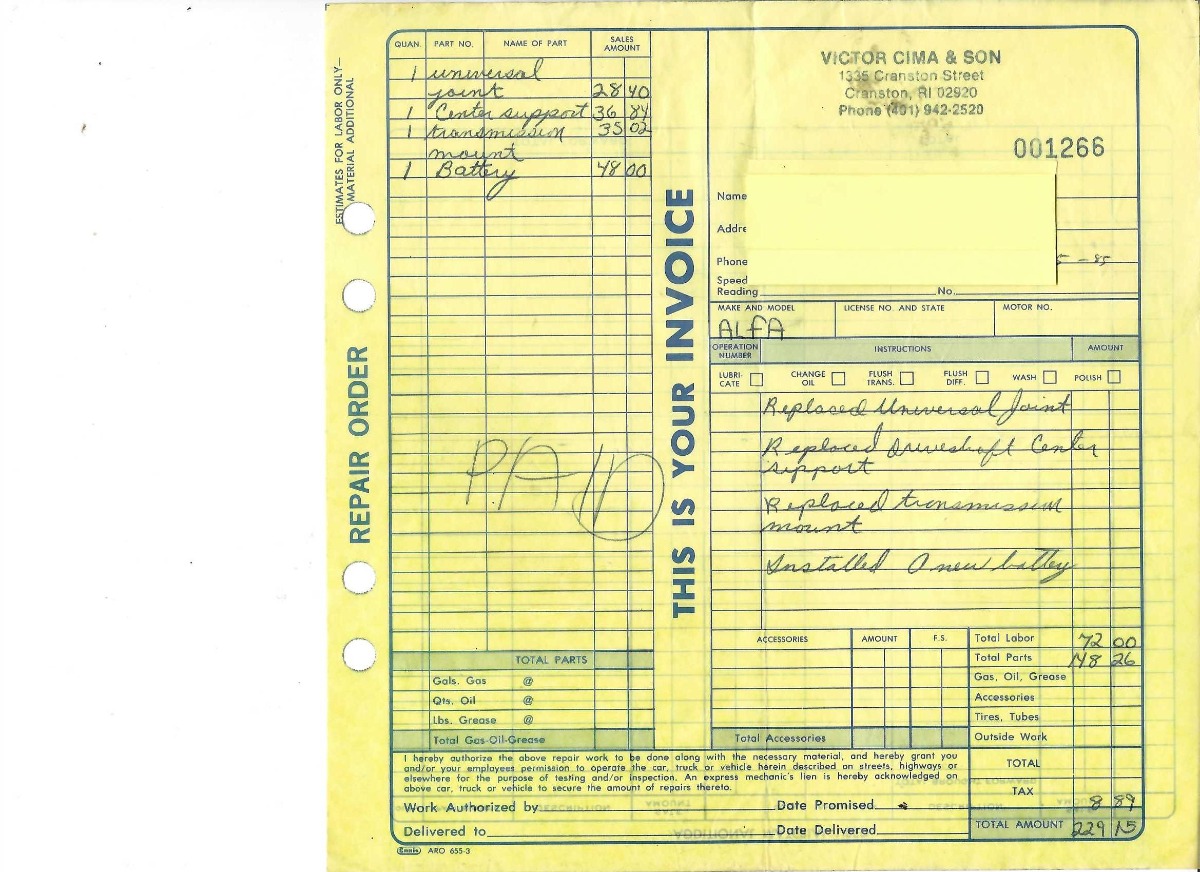 ESTIMATES FOR LABOR ONLY—
MATERIAL ADDITIONAL
REPAIR ORDER
QUAN. PART NO. NAME OF PART SALES AMOUNT
1 universal
joint 28 40
1 Center support 36 84
1 transmission 35 02
mount
1 Battery 48 00
PAID
TOTAL PARTS
Gals. Gas @
Qts. Oil @
Lbs. Grease @
Total Gas-Oil-Grease
THIS IS YOUR INVOICE
VICTOR CIMA & SON
1335 Cranston Street
Cranston, RI 02920
Phone (401) 942-2520
001266
Name
Addre
Phone 5 - 85
Speed
Reading No.
MAKE AND MODEL LICENSE NO. AND STATE MOTOR NO.
ALFA
OPERATION NUMBER INSTRUCTIONS AMOUNT
LUBRI-CATE CHANGE OIL FLUSH TRANS. FLUSH DIFF. WASH POLISH
Replaced Universal Joint
Replaced Driveshaft Center
support
Replaced transmission
mount
Installed A new battey
ACCESSORIES AMOUNT F.S.
Total Accessories
Total Labor 72 00
Total Parts 148 26
Gas, Oil, Grease
Accessories
Tires, Tubes
Outside Work
TOTAL
TAX 8 89
TOTAL AMOUNT 229 15
I hereby authorize the above repair work to be done along with the necessary material, and hereby grant you
and/or your employees permission to operate the car, truck or vehicle herein described on streets, highways or
elsewhere for the purpose of testing and/or inspection. An express mechanic's lien is hereby acknowledged on
above car, truck or vehicle to secure the amount of repairs thereto.
Work Authorized by Date Promised
Delivered to Date Delivered
Ennis ARO 655-3